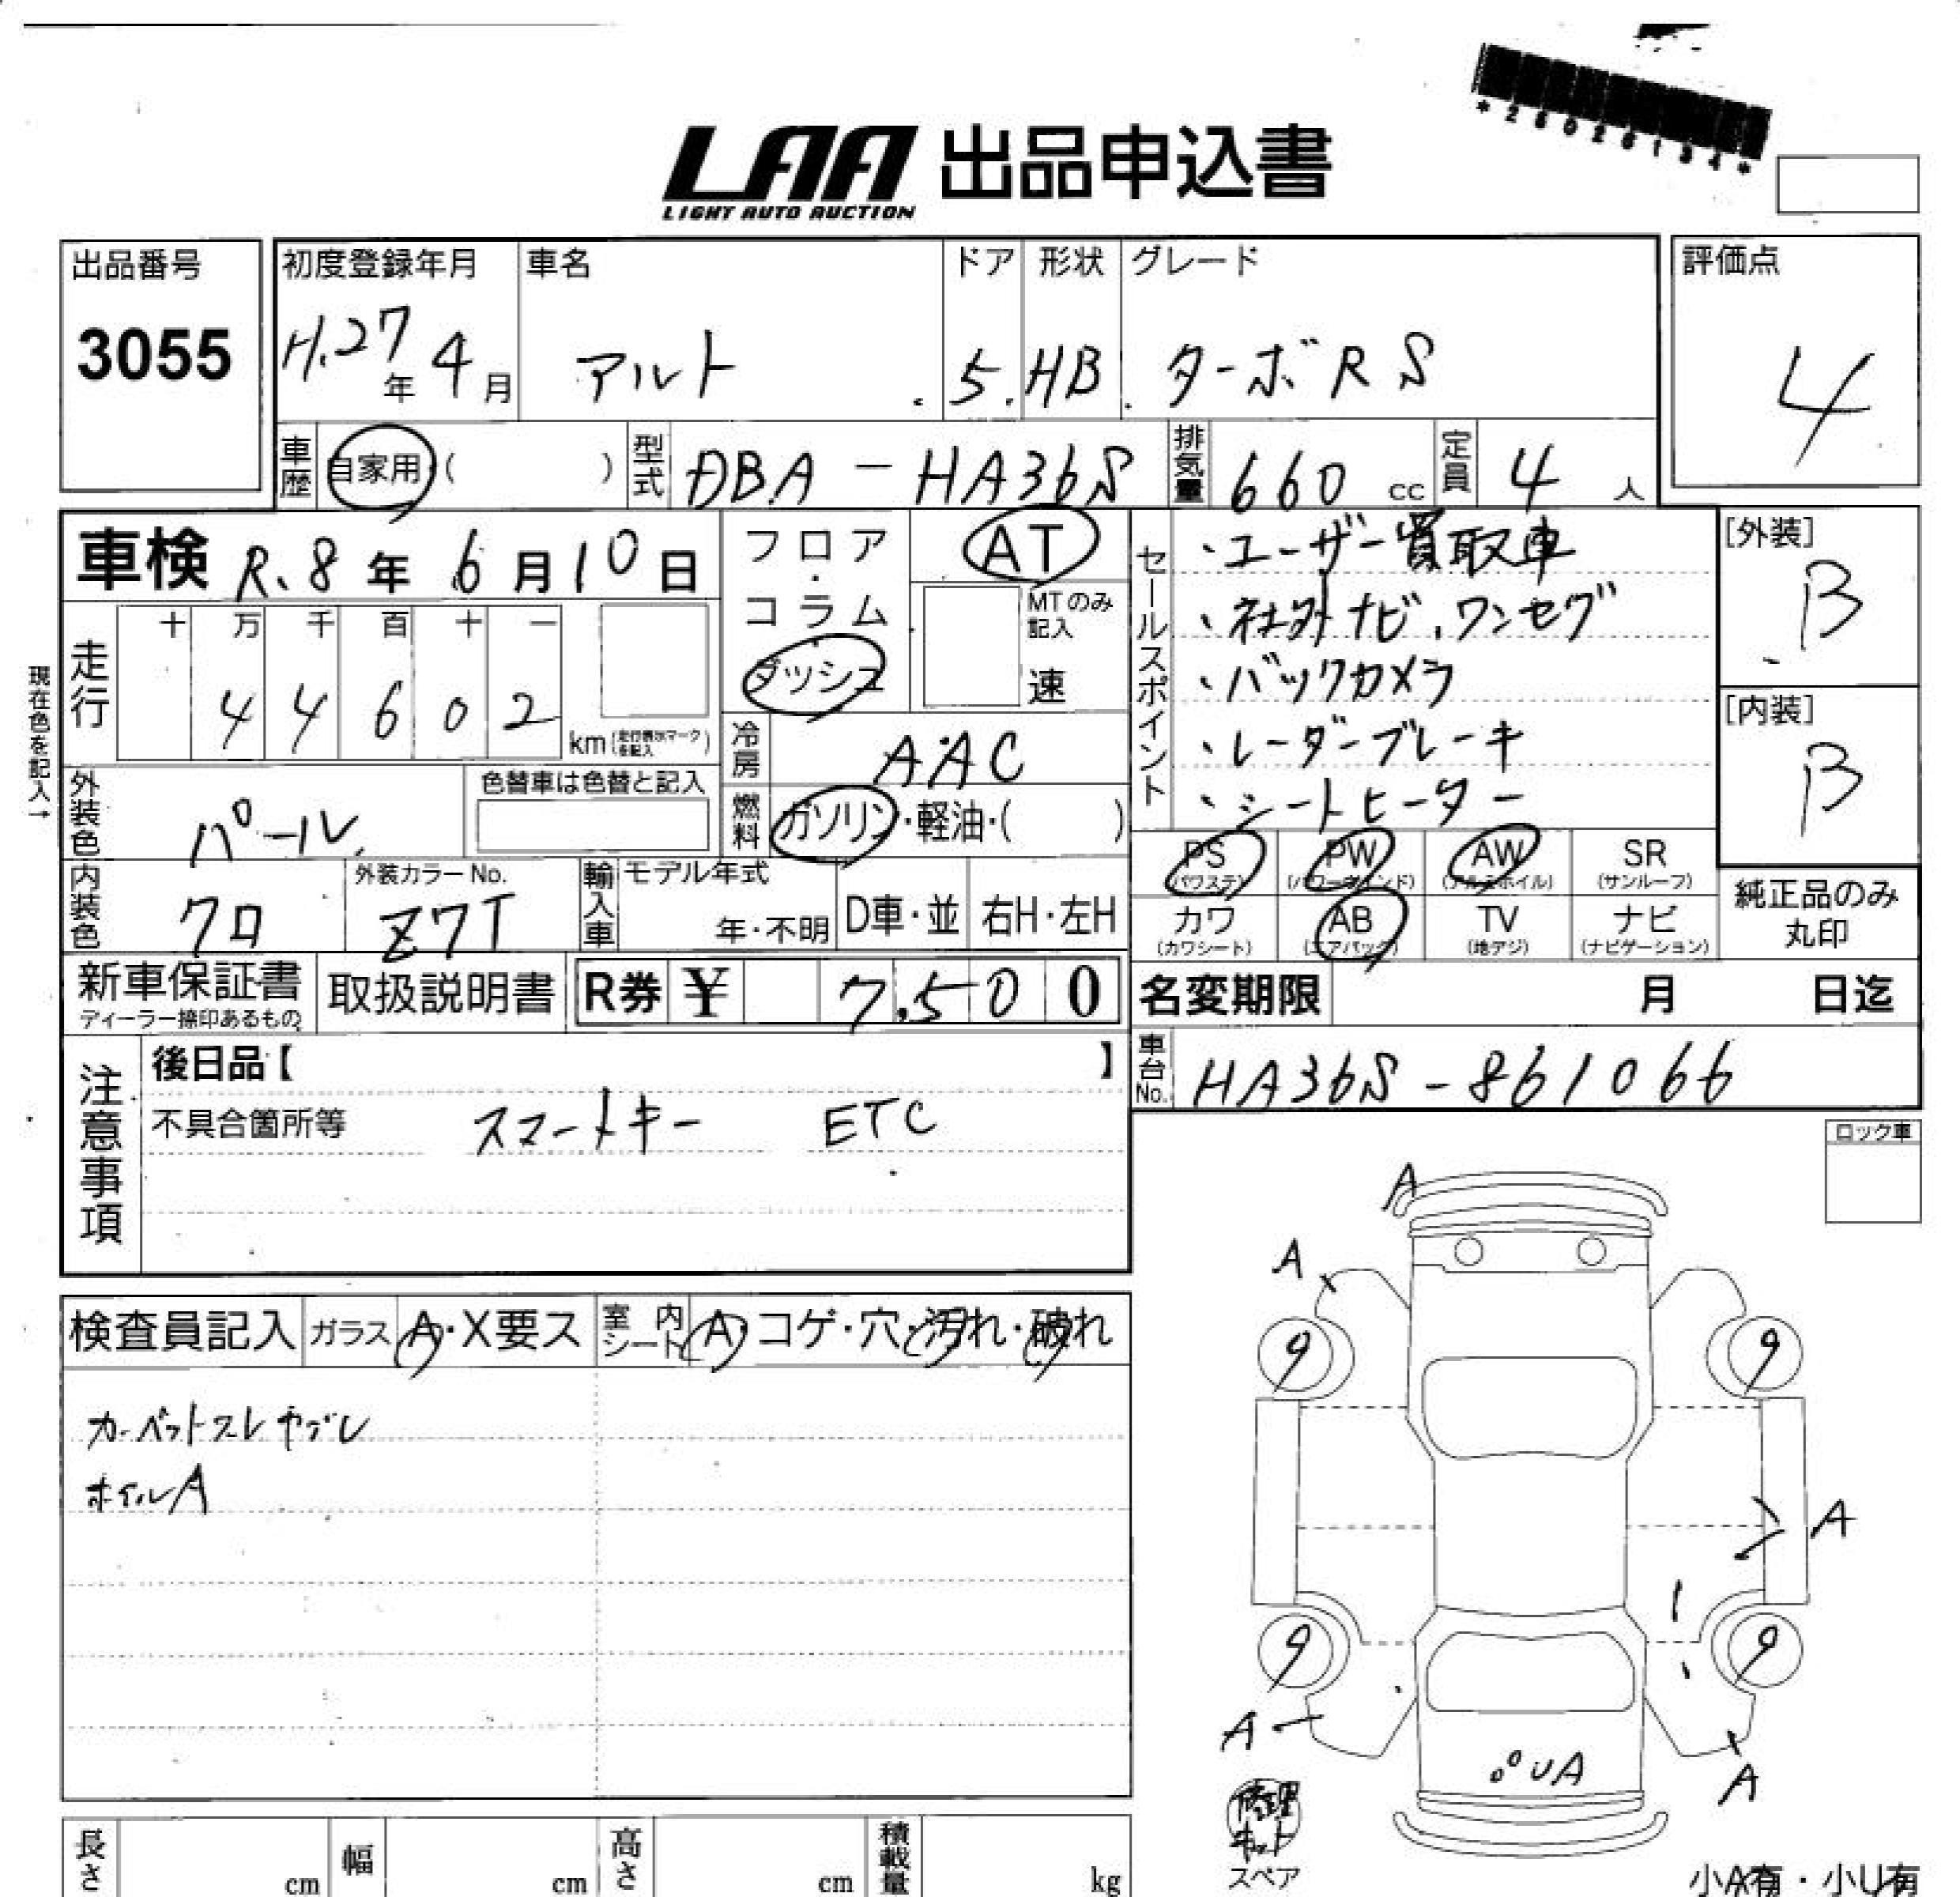 *28026134*
LAA 出品申込書
LIGHT AUTO AUCTION
出品番号 初度登録年月 車名 ドア 形状 グレード 評価点
3055 H.27年 4月 アルト 5 HB ターボRS 4
車歴 自家用 ( ) 型式 DBA-HA36S 排気量 660 cc 定員 4 人
車検 R.8年 6月10日 フロア・コラム・ダッシュ AT セールスポイント
・ユーザー買取車 [外装] B
走行 十 万 千 百 十 一 MTのみ記入 速
・社外ナビ,ワンセグ
・バックカメラ [内装] B
現在色を記入→ 44602 km(走行表示マークを記入)
冷房 AAC ・レーダーブレーキ
外装色 パール 色替車は色替と記入 燃料 ガソリン・軽油・( )
・シートヒーター
PS (パワステ) PW (パワーウィンド) AW (アルミホイル) SR (サンルーフ)
内装色 クロ 外装カラーNo. Z7T 輸入車 モデル年式 年・不明 D車・並 右H・左H
カワ (カワシート) AB (エアバック) TV (地デジ) ナビ (ナビゲーション) 純正品のみ丸印
新車保証書 ディーラー捺印あるもの 取扱説明書 R券 ¥ 7,500 名変期限 月 日迄
注意事項 後日品【 】 車台No. HA36S-861066
不具合箇所等 スマートキー ETC
ロック車
検査員記入 ガラス A・X要ス 室内シート A・コゲ・穴・汚れ・破れ
カーペットスレヤブレ
ホイルA
A
A
9 9
A
9 9
A
A
UA
修理キット
スペア
長さ cm 幅 cm 高さ cm 積載量 kg
小A有・小U有